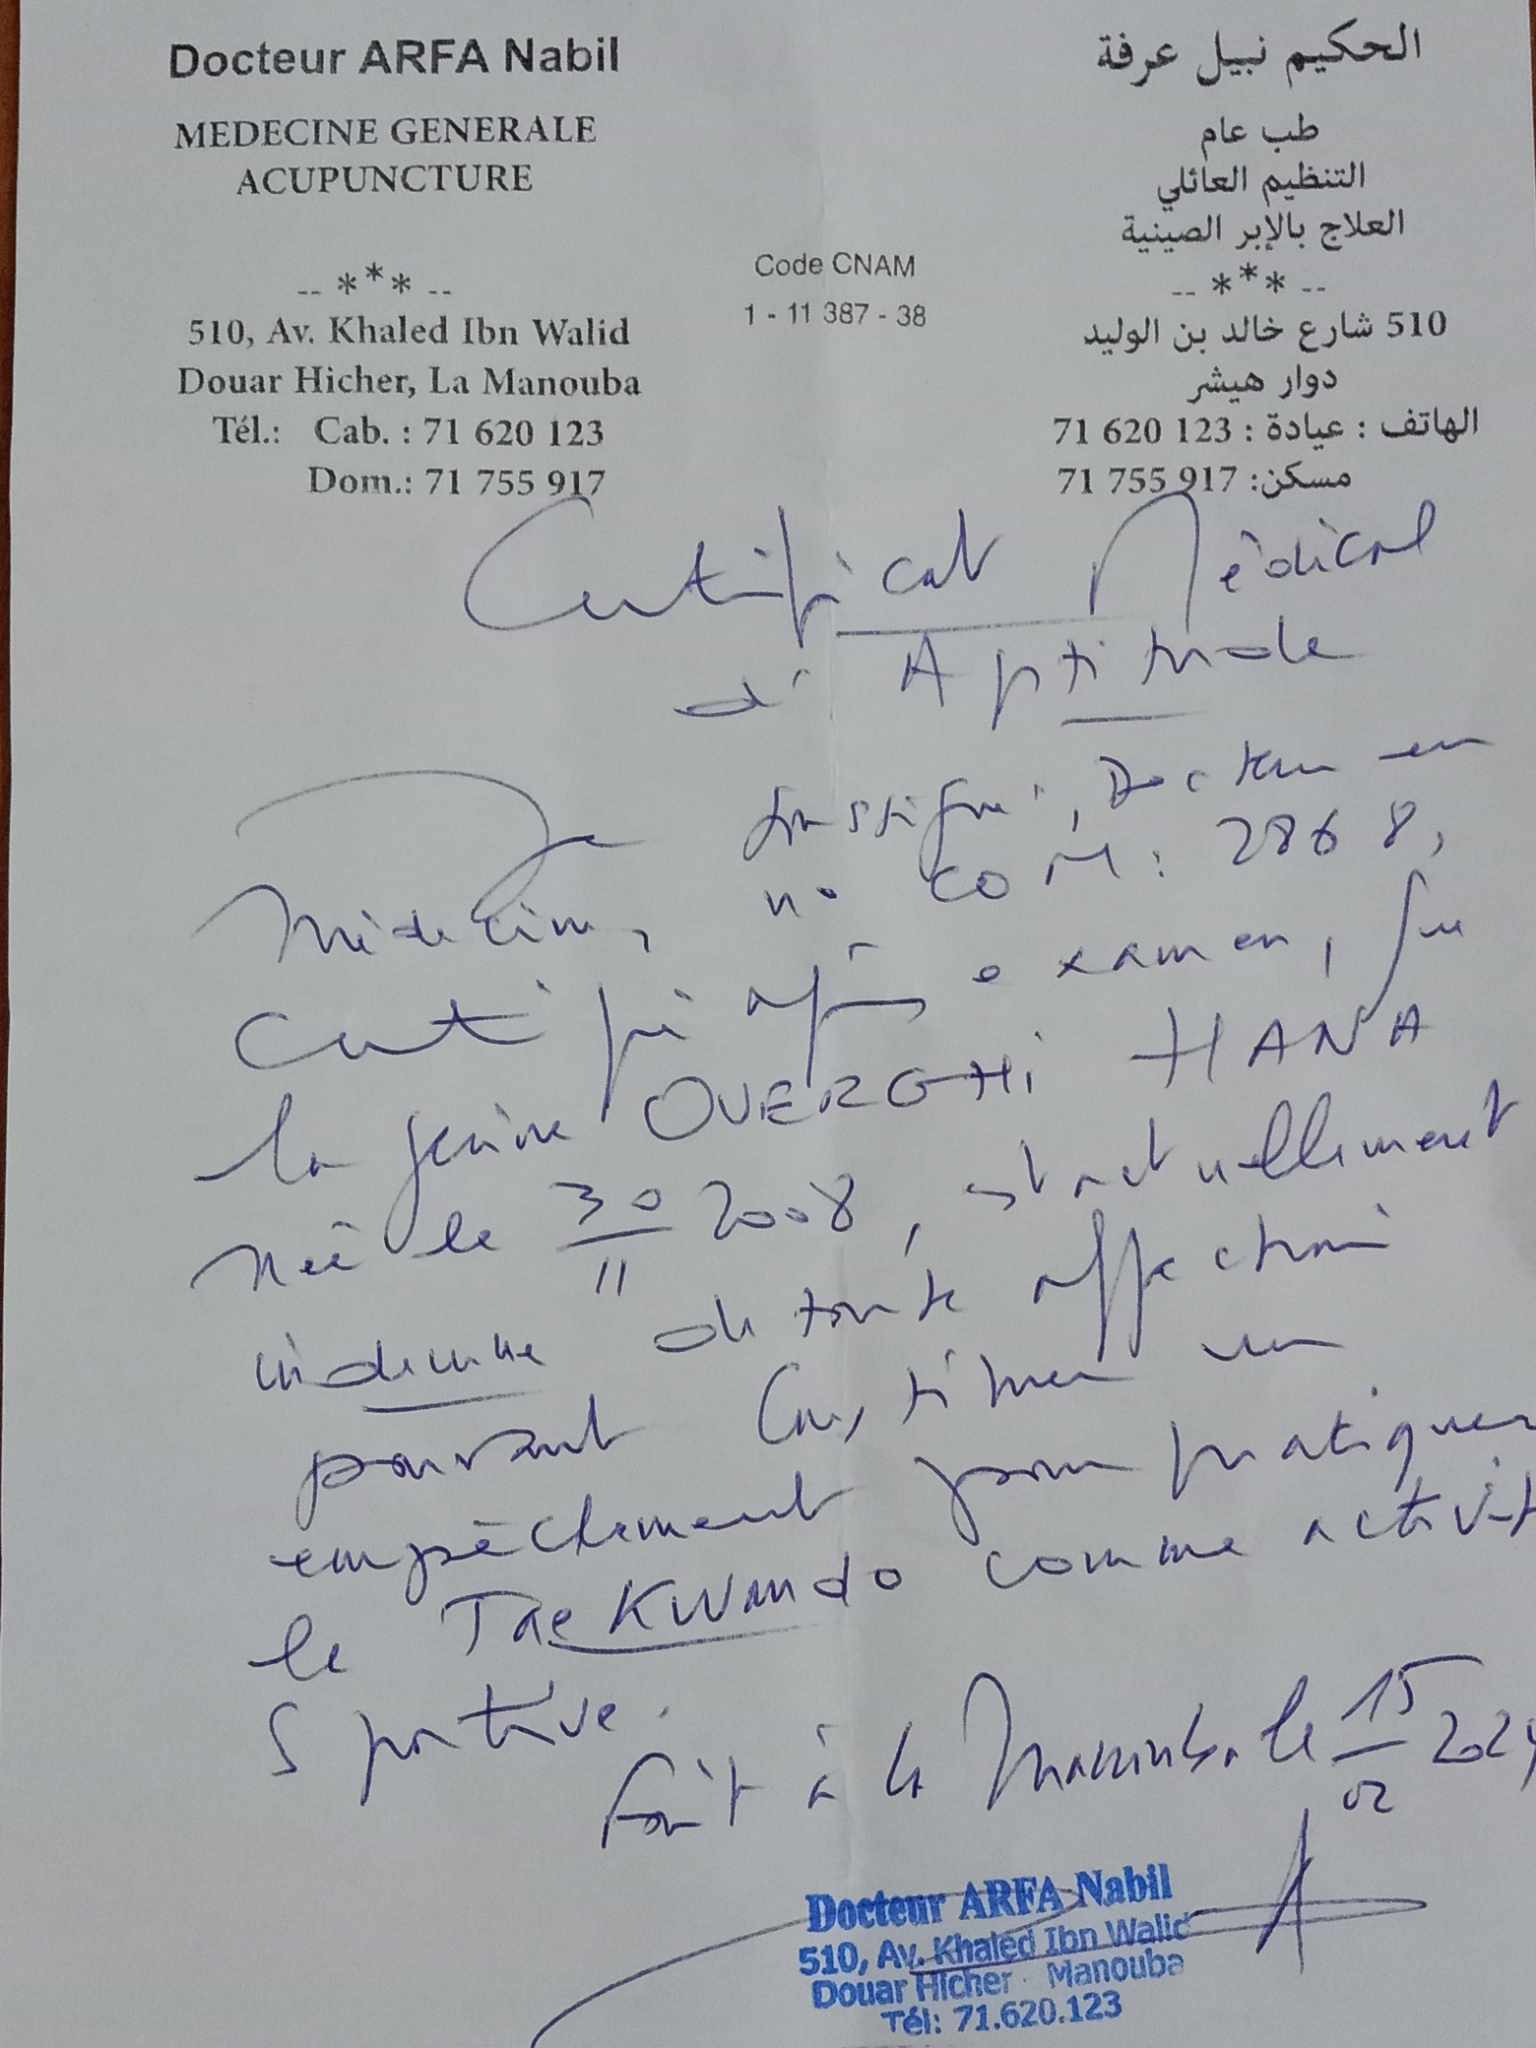 Docteur ARFA Nabil
MEDECINE GENERALE
ACUPUNCTURE
-- *** --
510, Av. Khaled Ibn Walid
Douar Hicher, La Manouba
Tél.: Cab. : 71 620 123
Dom.: 71 755 917
Code CNAM
1 - 11 387 - 38
الحكيم نبيل عرفة
طب عام
التنظيم العائلي
العلاج بالإبر الصينية
-- *** --
510 شارع خالد بن الوليد
دوار هيشر
الهاتف : عيادة : 71 620 123
مسكن: 71 755 917
Certificat Médical
d'Aptitude
Je soussigné, Docteur en
Médecine, n° COM: 2868,
Certifie après examen, que
la jeune OUERGHI HANA
Née le 30/11 2008, est actuellement
indemne de toute affection
pouvant Constituer un
empêchement pour pratiquer
le TaeKwando comme activité
Sportive.
Fait à la Manouba le 15/02 2024
Docteur ARFA Nabil
510, Av. Khaled Ibn Walid
Douar Hicher - Manouba
Tél: 71.620.123